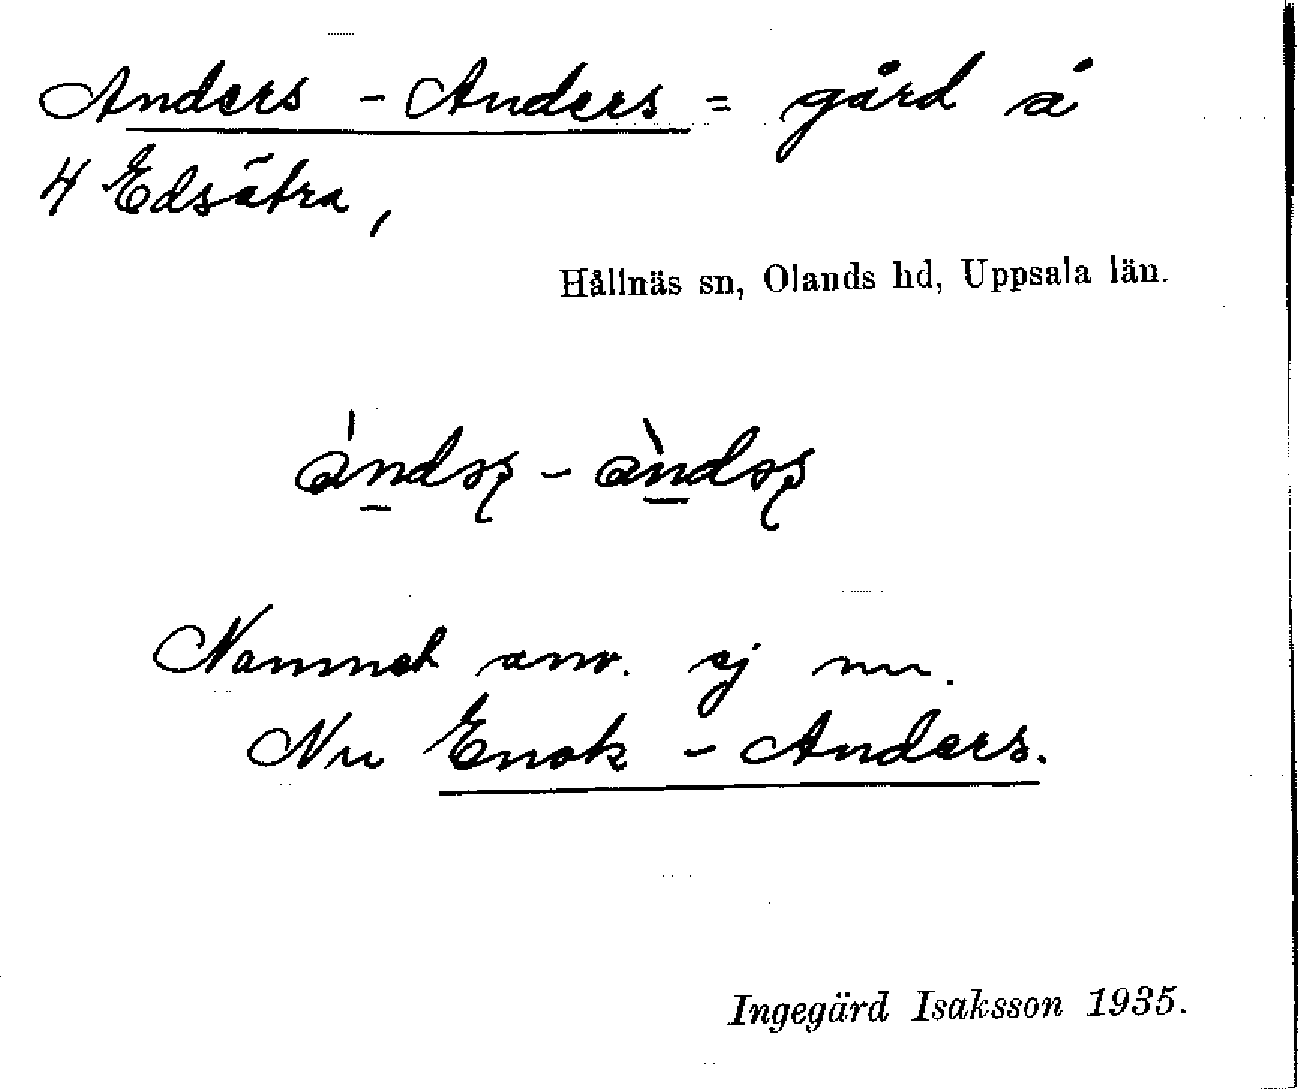 Anders - Anders = gård å
4 Edsätra,
Hållnäs sn, Olands hd, Uppsala län.
Namnet anv. ej nu.
Nu Enok - Anders.
Ingegärd Isaksson 1935.